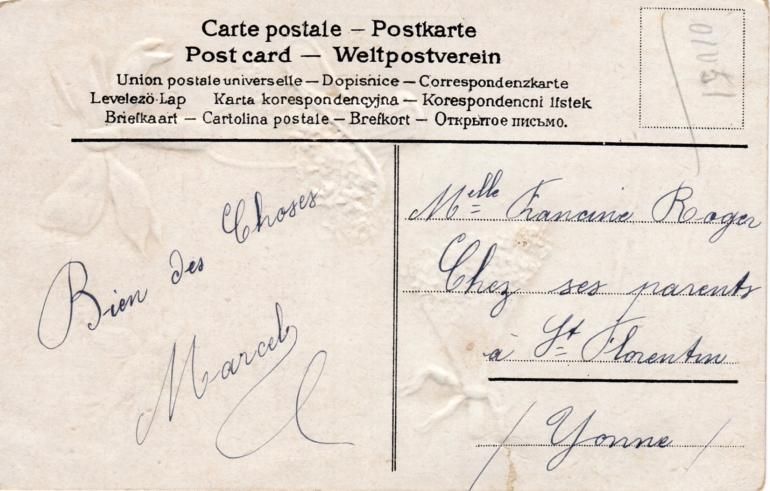 Carte postale – Postkarte
Post card — Weltpostverein
Union postale universelle — Dopisnice — Correspondenzkarte
Levelezö-Lap Karta korespondencyjna — Korespondencni lístek
Briefkaart — Cartolina postale — Brefkort — Открытое письмо.
Bien des Choses
Marcel
Melle Francine Roger
Chez ses parents
à St Florentin
/ Yonne /